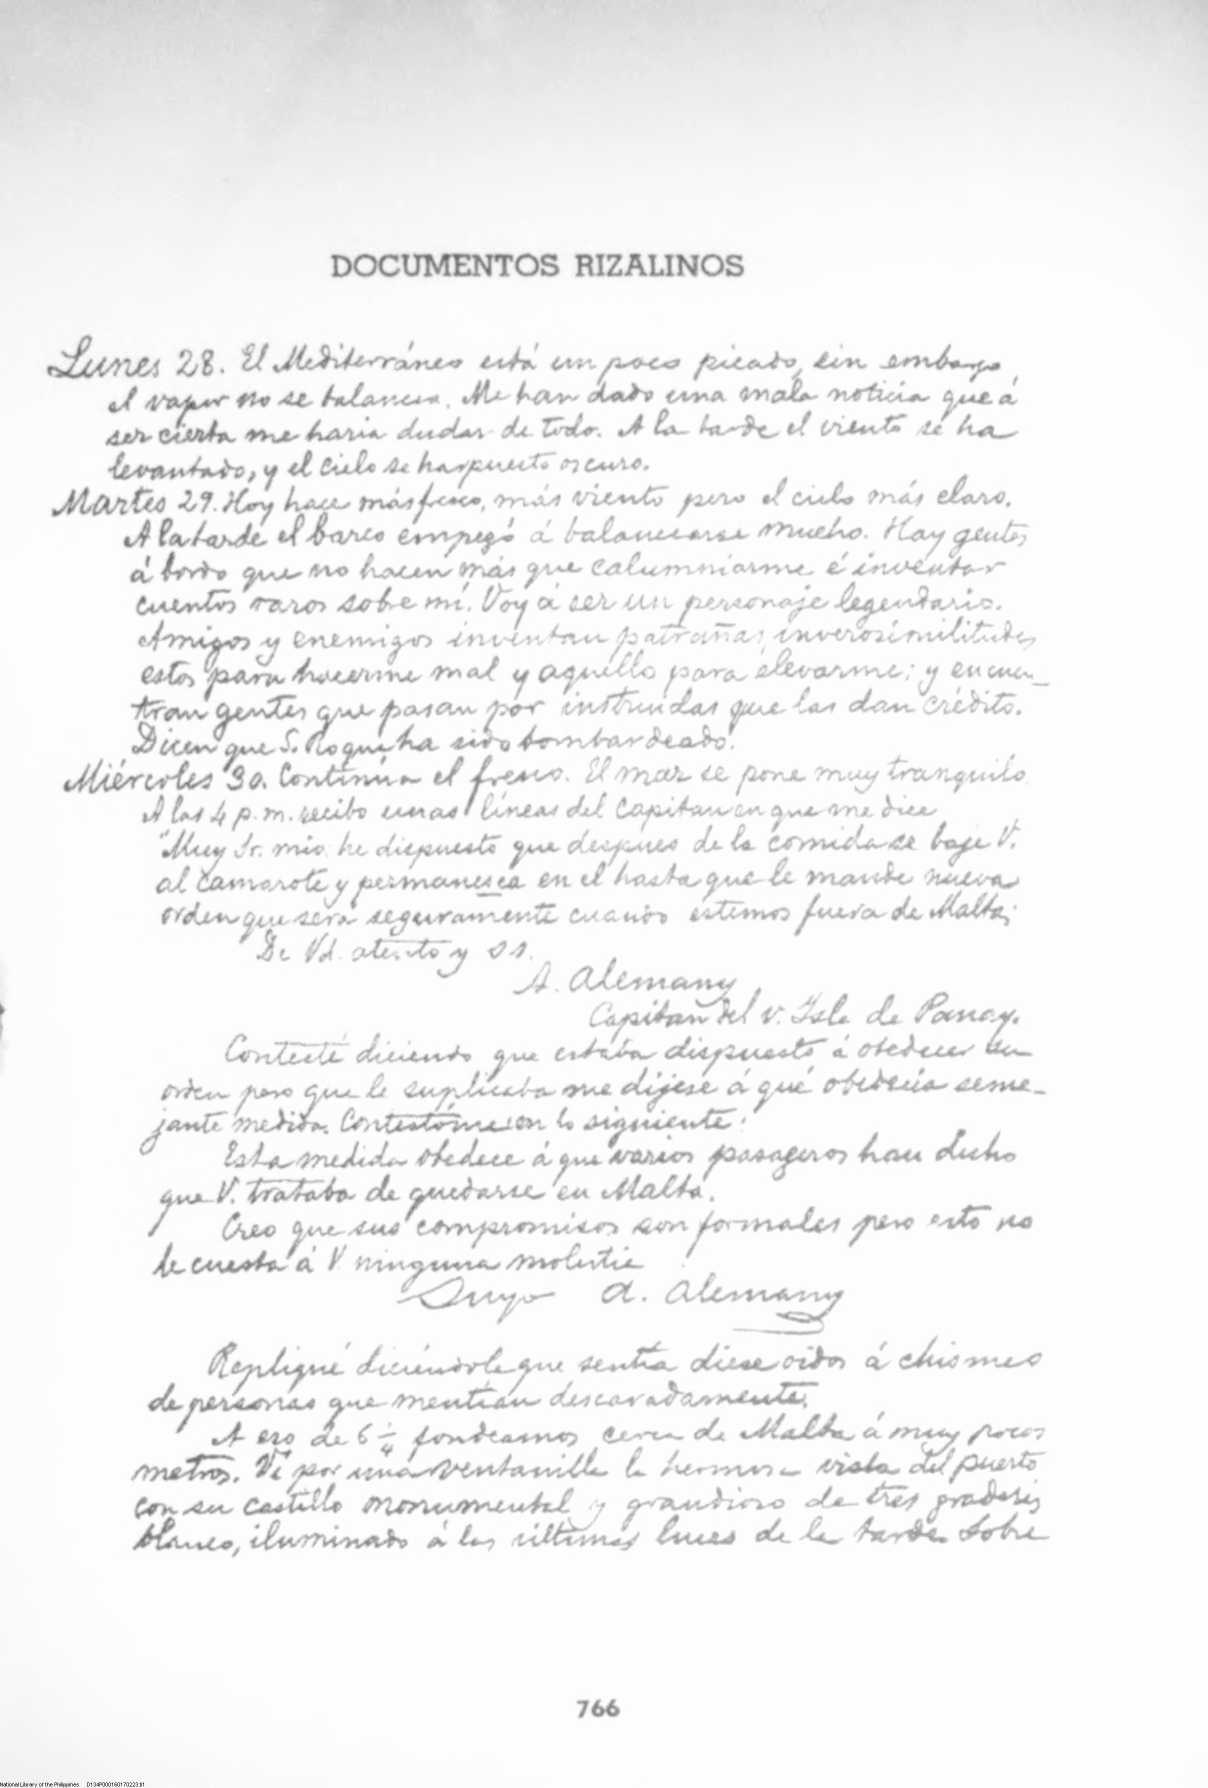 DOCUMENTOS RIZALINOS
Lunes 28. El Mediterráneo está un poco picado, sin embargo,
el vapor no se balancea. Me han dado una mala noticia que á
ser cierta me haria dudar de todo. A la tarde el viento se ha
levantado, y el cielo se ha puesto oscuro.
Martes 29. Hoy hace más fresco, más viento pero el cielo más claro.
A la tarde el barco empezó á balancearse mucho. Hay gentes
á bordo que no hacen más que calumniarme é inventar
cuentos raros sobre mí. Voy á ser un personaje legendario.
Amigos y enemigos inventan patrañas, inverosimilitudes
estos para hacerme mal y aquello para elevarme; y encuen-
tran gentes que pasan por instruidas que las dan crédito.
Dicen que S. Roque ha sido bombardeado.
Miércoles 30. Continúa el fresco. El mar se pone muy tranquilo
A las 4 p.m. recibo unas líneas del Capitan en que me dice
"Muy Sr. mio: he dispuesto que despues de la comida se baje V.
al camarote y permanesca en el hasta que le mande nueva
orden que será seguramente cuando estemos fuera de Malta;
De Vd. atento y s s.
A. Alemany
Capitan del v. Isla de Panay.
Contesté diciendo que estaba dispuesto á obedecer su
orden pero que le suplicaba me dijese á qué obedecía seme-
jante medida. Contestóme con lo siguiente:
Esta medida obedece á que varios pasageros han dicho
que V. trataba de quedarse en Malta.
Creo que sus compromisos son formales pero esto no
le cuesta á V ninguna molestia
Suyo A. Alemany
Repliqué diciéndole que sentía diese oidos á chismes
de personas que mentían descaradamente.
A eso de 6 1/4 fondeamos cerca de Malta á muy pocos
metros. Ví por una ventanilla la hermosa vista del puerto
con su castillo monumental y grandioso de tres
blanco, iluminado á las últimas luces de la tarde. Sobre
766
National Library of the Philippines